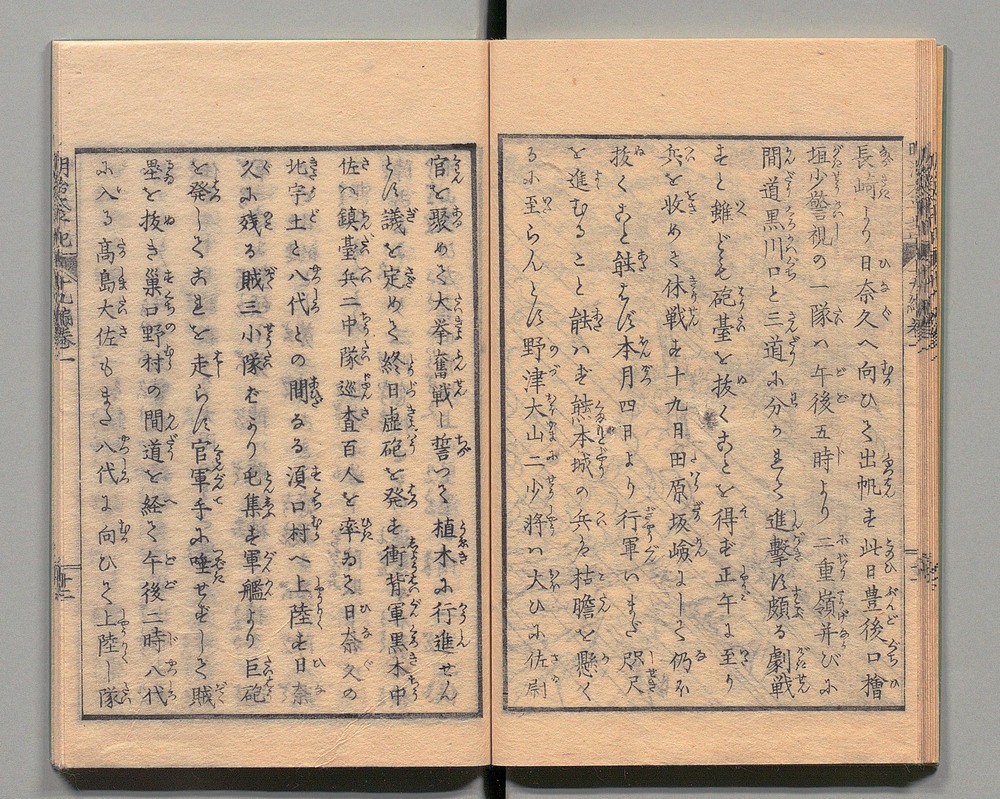 長崎より日奈久へ向ひて出帆も此日豊後口檜
垣少警視の一隊ハ午後五時より二重嶺并びに
間道黒川口と三道に分かれて進撃す頗る劇戦
すと雖ども砲臺を抜くことを得ず正午に至り
兵を收めて休戦す十九日田原坂嶮にして仍ほ
抜くこと能はず本月四日より行軍いまだ咫尺
を進むること能ハず熊本城の兵尤枯膽を懸く
るに至らんとす野津大山二少將ハ大ひに佐尉
官を聚めて大挙奮戦し誓つて植木に行進せん
とす議を定めて終日虚砲を発す衝背軍黒木中
佐ハ鎮臺兵二中隊巡査百人を率ゐて日奈久の
北宇土と八代との間なる湏口村へ上陸す日奈
久に残る賊三小隊ばかり屯集す軍艦より巨砲
を発してこれを走らす官軍手に唾せずして賊
壘を抜き巣口野村の間道を経て午後二時八代
に入る髙島大佐もまた八代に向ひて上陸し隊
明治太平記
十九編巻一